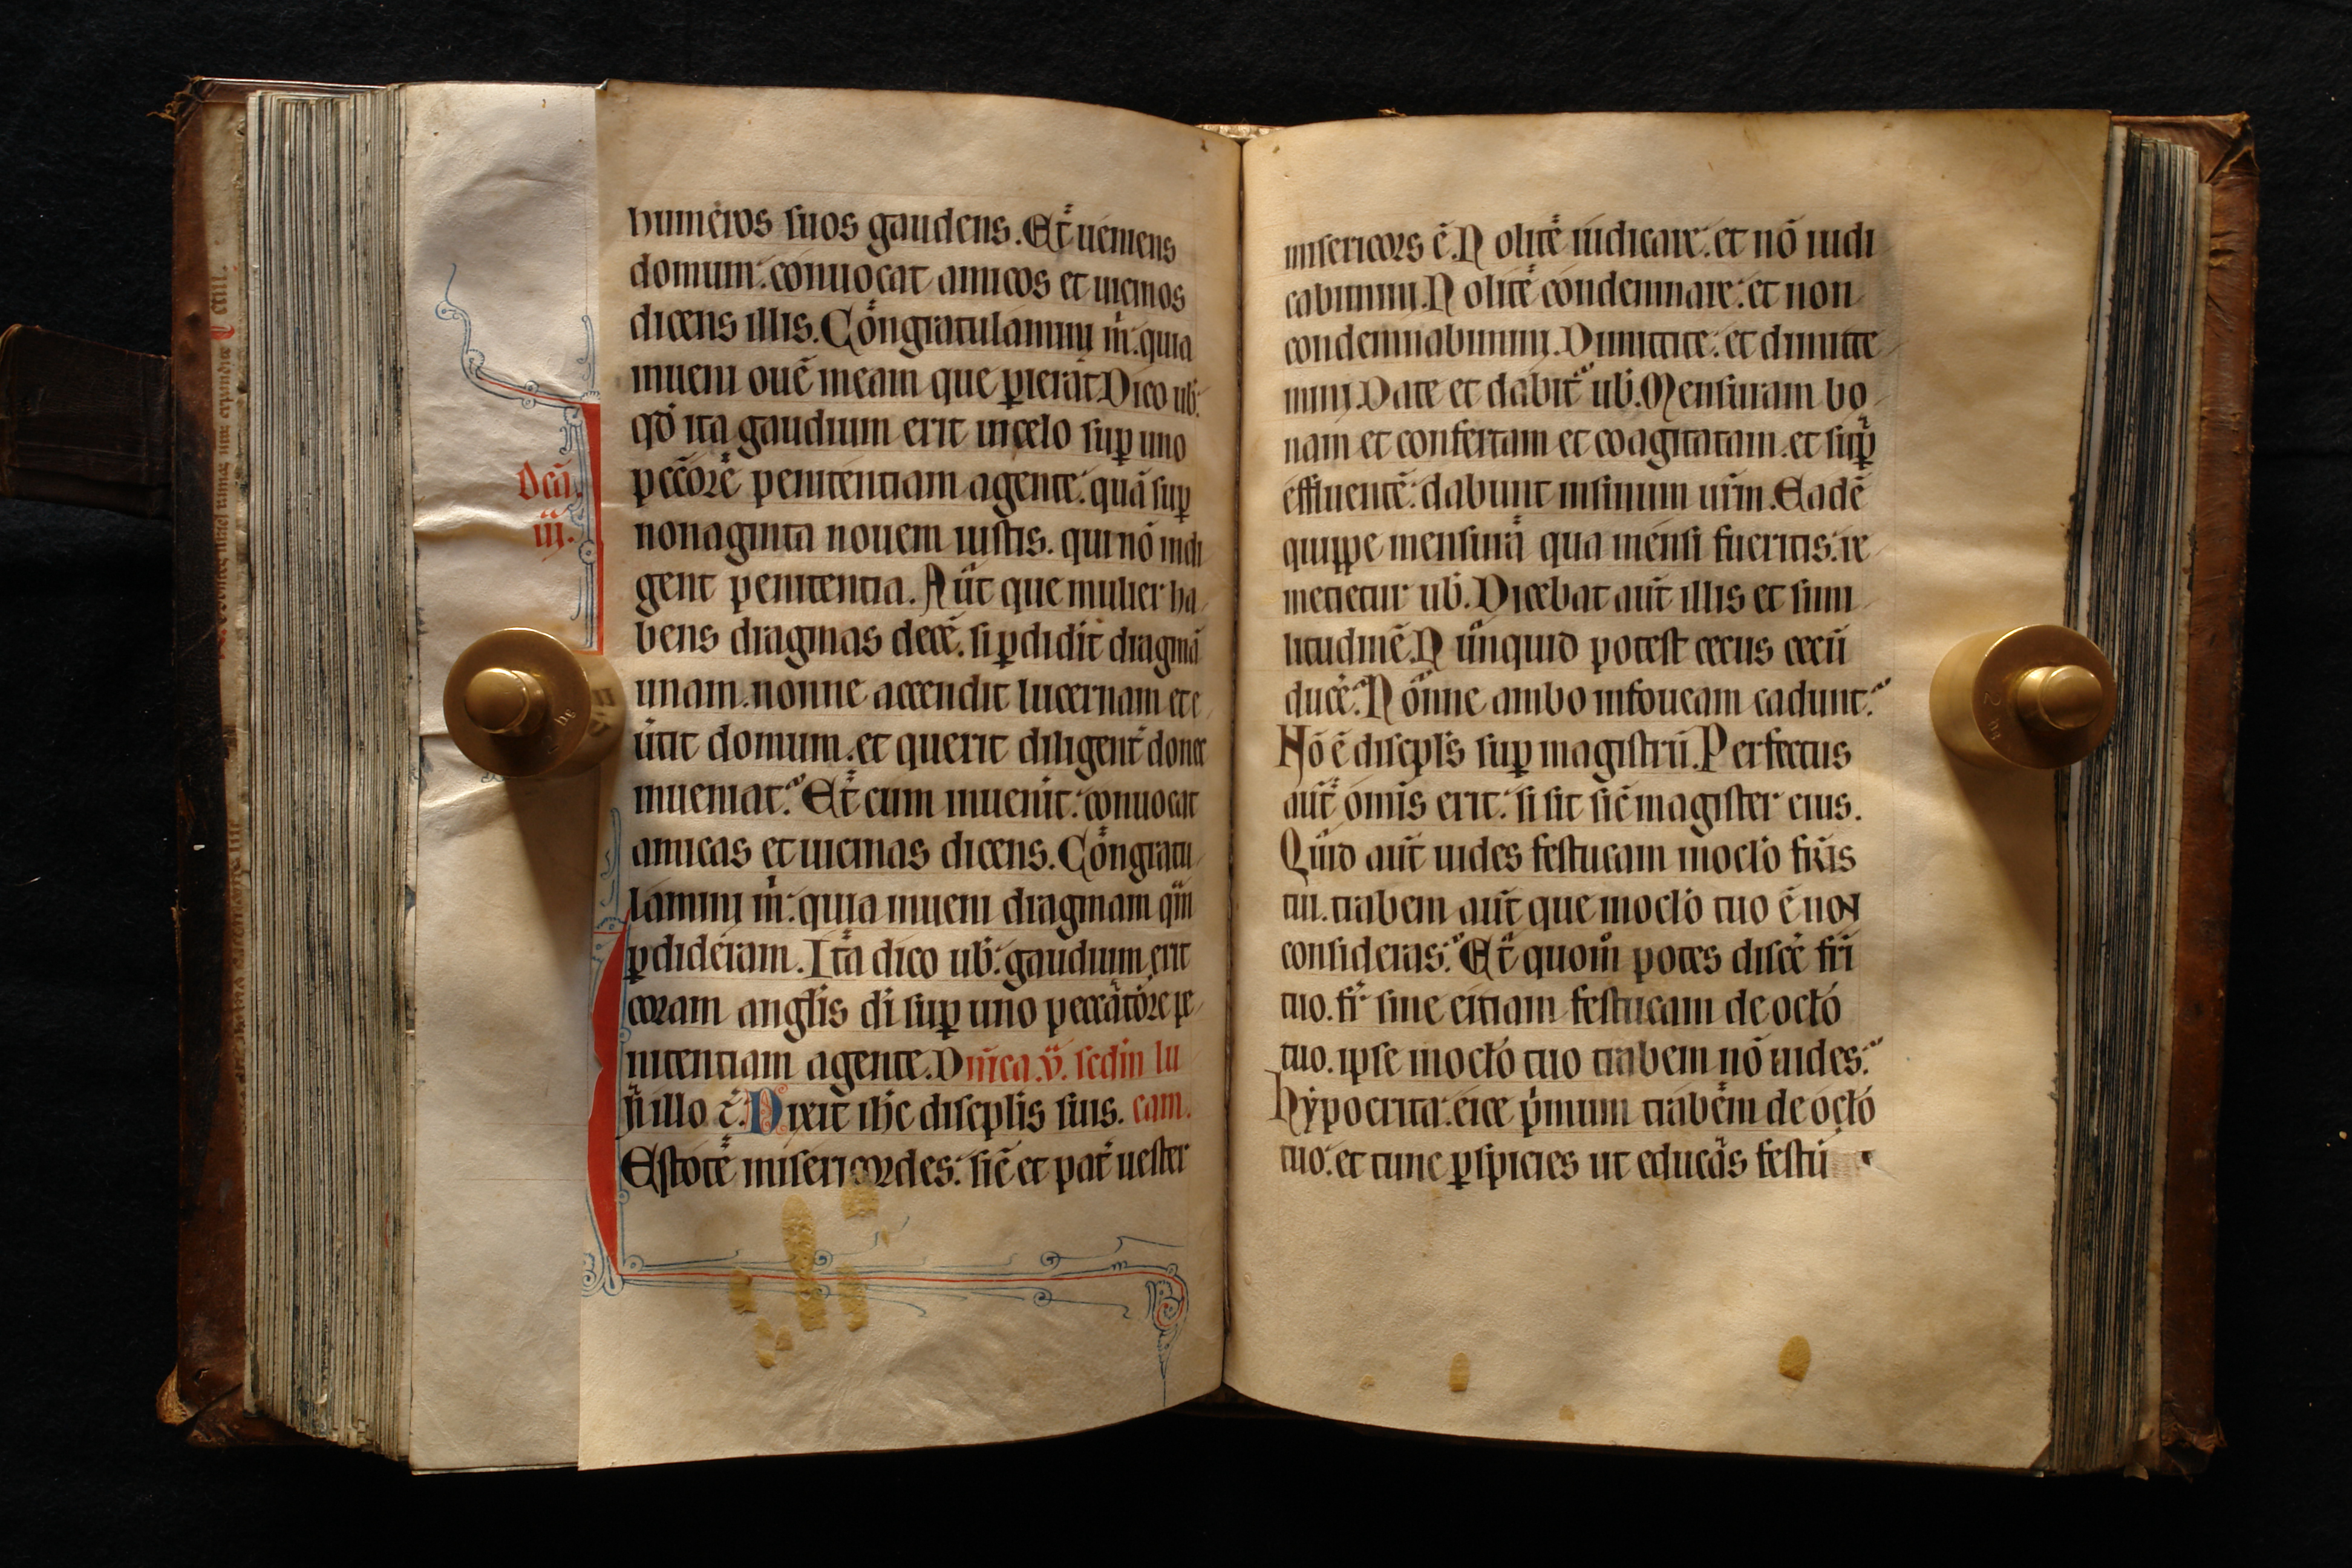 humeros suos gaudens. Et ueniens
domum: conuocat amicos et uicinos
dicens illis. Congratulamini m̄: quia
inueni ouē meam que ꝑierat Dico ub̄:
qđ ita gaudium erit in celo suꝑ uno
peccōrē penitentiam agente: quā suꝑ
nonaginta nouem iustis. qui nō indi
gent penitentia. Aūt que mulier ha
bens dragmas decē. si ꝑdidit dragmā
unam. nonne accendit lucernam et e
ūtit domum. et querit diligent̄ donec
inueniat. Et cum inuenit: conuocat
amicas et uicinas dicens. Congratu
lamini m̄: quia inueni dragmam q̄m
ꝑdideram. Ita dico ub̄: gaudium erit
coram angłis di suꝑ uno peccatore pe
nitentiam agente. Dnīca .v. scđin lu
cam.
Jn̄ illo t̄. Dixit ihc discipłis suis.
Estote misericordes: sic̄ et pat̄ uester
Dcā.
iij.
misericors ē. Nolite iudicare: et nō iudi
cabimini. Nolite condemnare: et non
condemnabimini. Dimittite: et dimitte
mini. Date et dabit ub̄. Mensuram bo
nam et confertam et coagitatam. et suꝑ
effluentē: dabunt in sinum ur̄m. Eadē
quippe mensura qua mensi fueritis: re
metietur ub̄. Dicebat aūt illis et simi
litudinē. Nunquid potest cecus cecū
duce᷒: Nonne ambo in foueam cadunt:
Nō ē discipłs suꝑ magistrū. Perfectus
aūt omīs erit: si sit sic̄ magister eius.
Quid aūt uides festucam in ocło fr̄is
tui. trabem aūt que in ocło tuo ē non
consideras: Et quom̊ potes dice᷒ fr̄i
tuo. fr̄ sine eiciam festucam de ocło
tuo. ipse in ocło tuo trabem nō uides:
hypocrita: eice pͥmum trabem de ocło
tuo: et tunc ꝑspicies ut educas festu